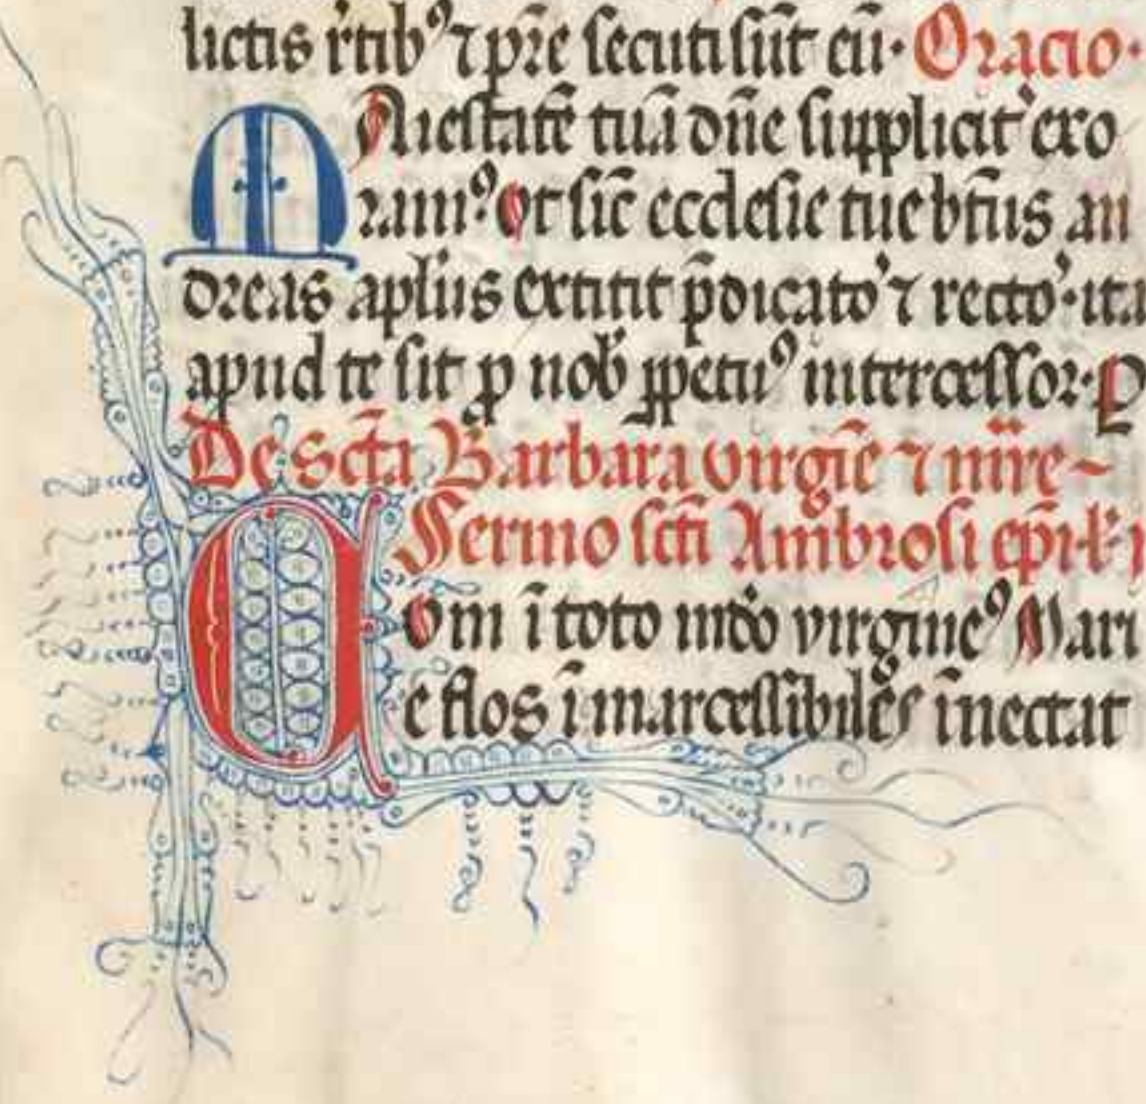 lictis rtib⁹ ⁊ pr̄e secuti sūt eū· Oracio·
MAiestatē tuā dn̄e supplicit᷑ exo
ram⁹· ut sic̄ ecclesie tue btn̄s an
dreas apl̄us extitit p̄dicato᷑ ⁊ recto᷑· ita
apud te sit ꝓ nob̄ ꝑpetu⁹ intercessor· P
De sc̄ta Barbara virgīe ⁊ m̄re
Sermo sc̄ti Ambrosi ep̄i·
Qom ī toto mūdo virgine⁹ Mari
e flos īmarcessibiles īnectat